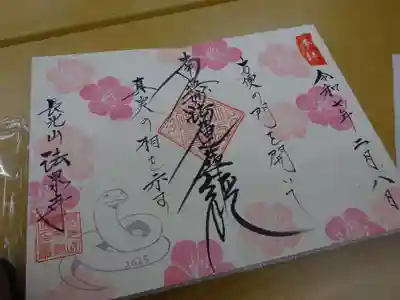 奉拝
令和七年二月八日
方便の門を開いて
南無妙法蓮華経
真実の相を示す
長光山 法泉寺
2025